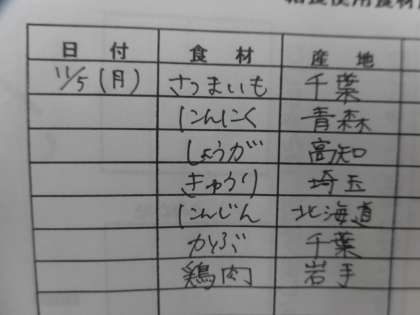 給食使用食材
日付 食材 産地
11/5(月) さつまいも 千葉
にんにく 青森
しょうが 高知
きゅうり 埼玉
にんじん 北海道
かぶ 千葉
鶏肉 岩手